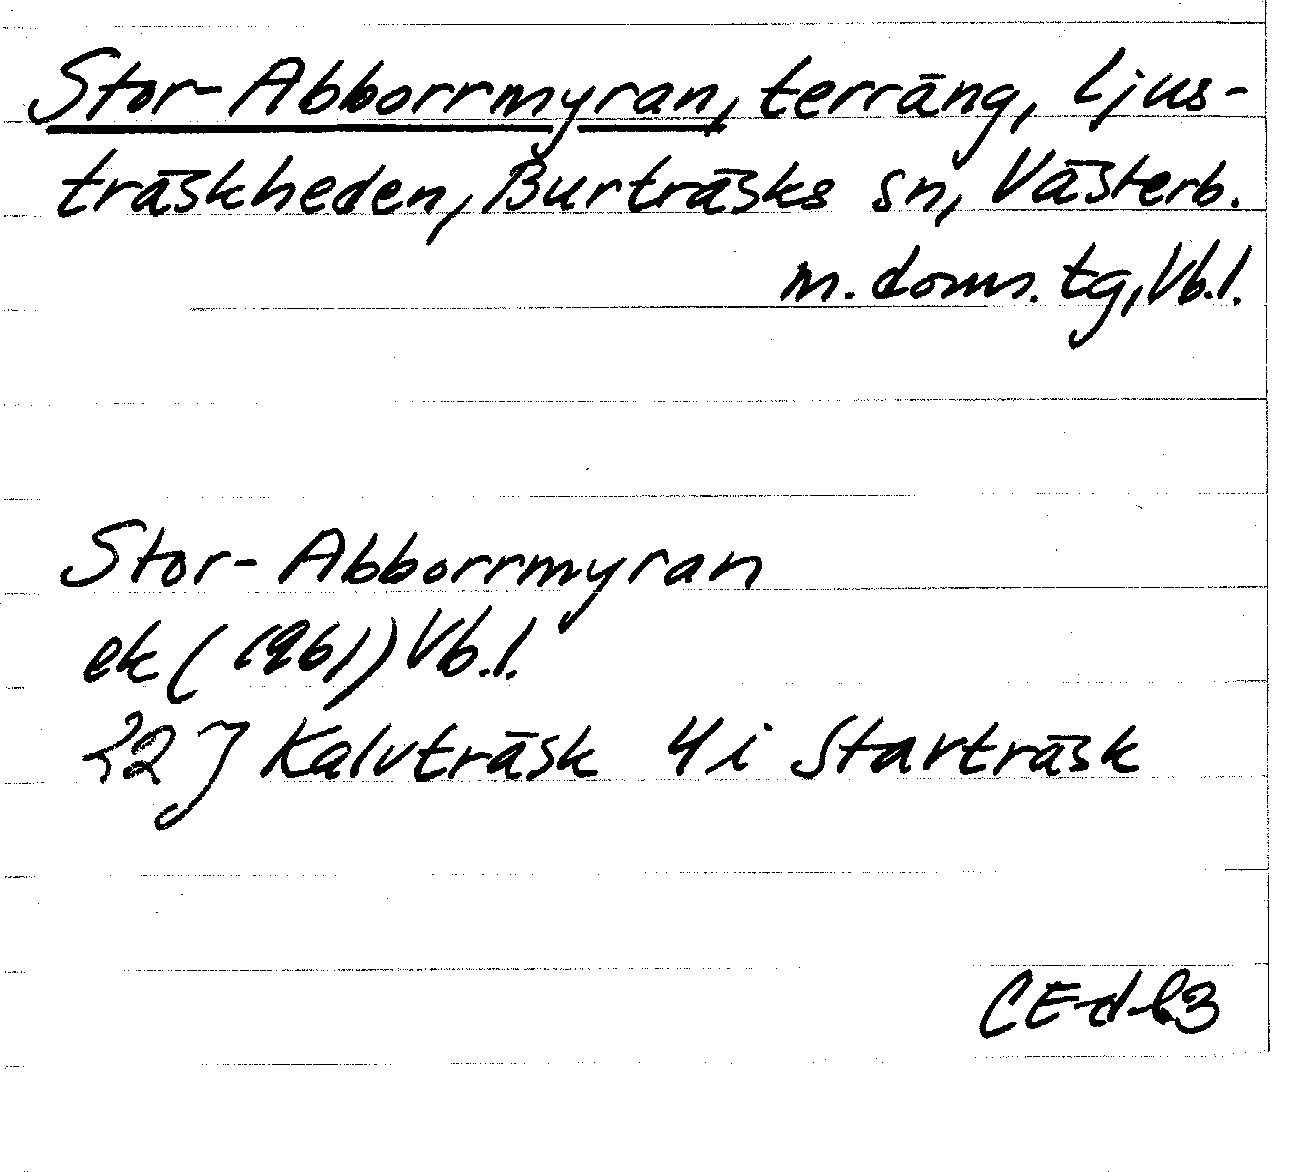 Stor-Abborrmyran, terräng, Ljus-
träskheden, Burträsks sn, Västerb.
m. doms. tg, Vb.l.
Stor-Abborrmyran
ek (1961) Vb.l.
22 J Kalvträsk 4i Starträsk